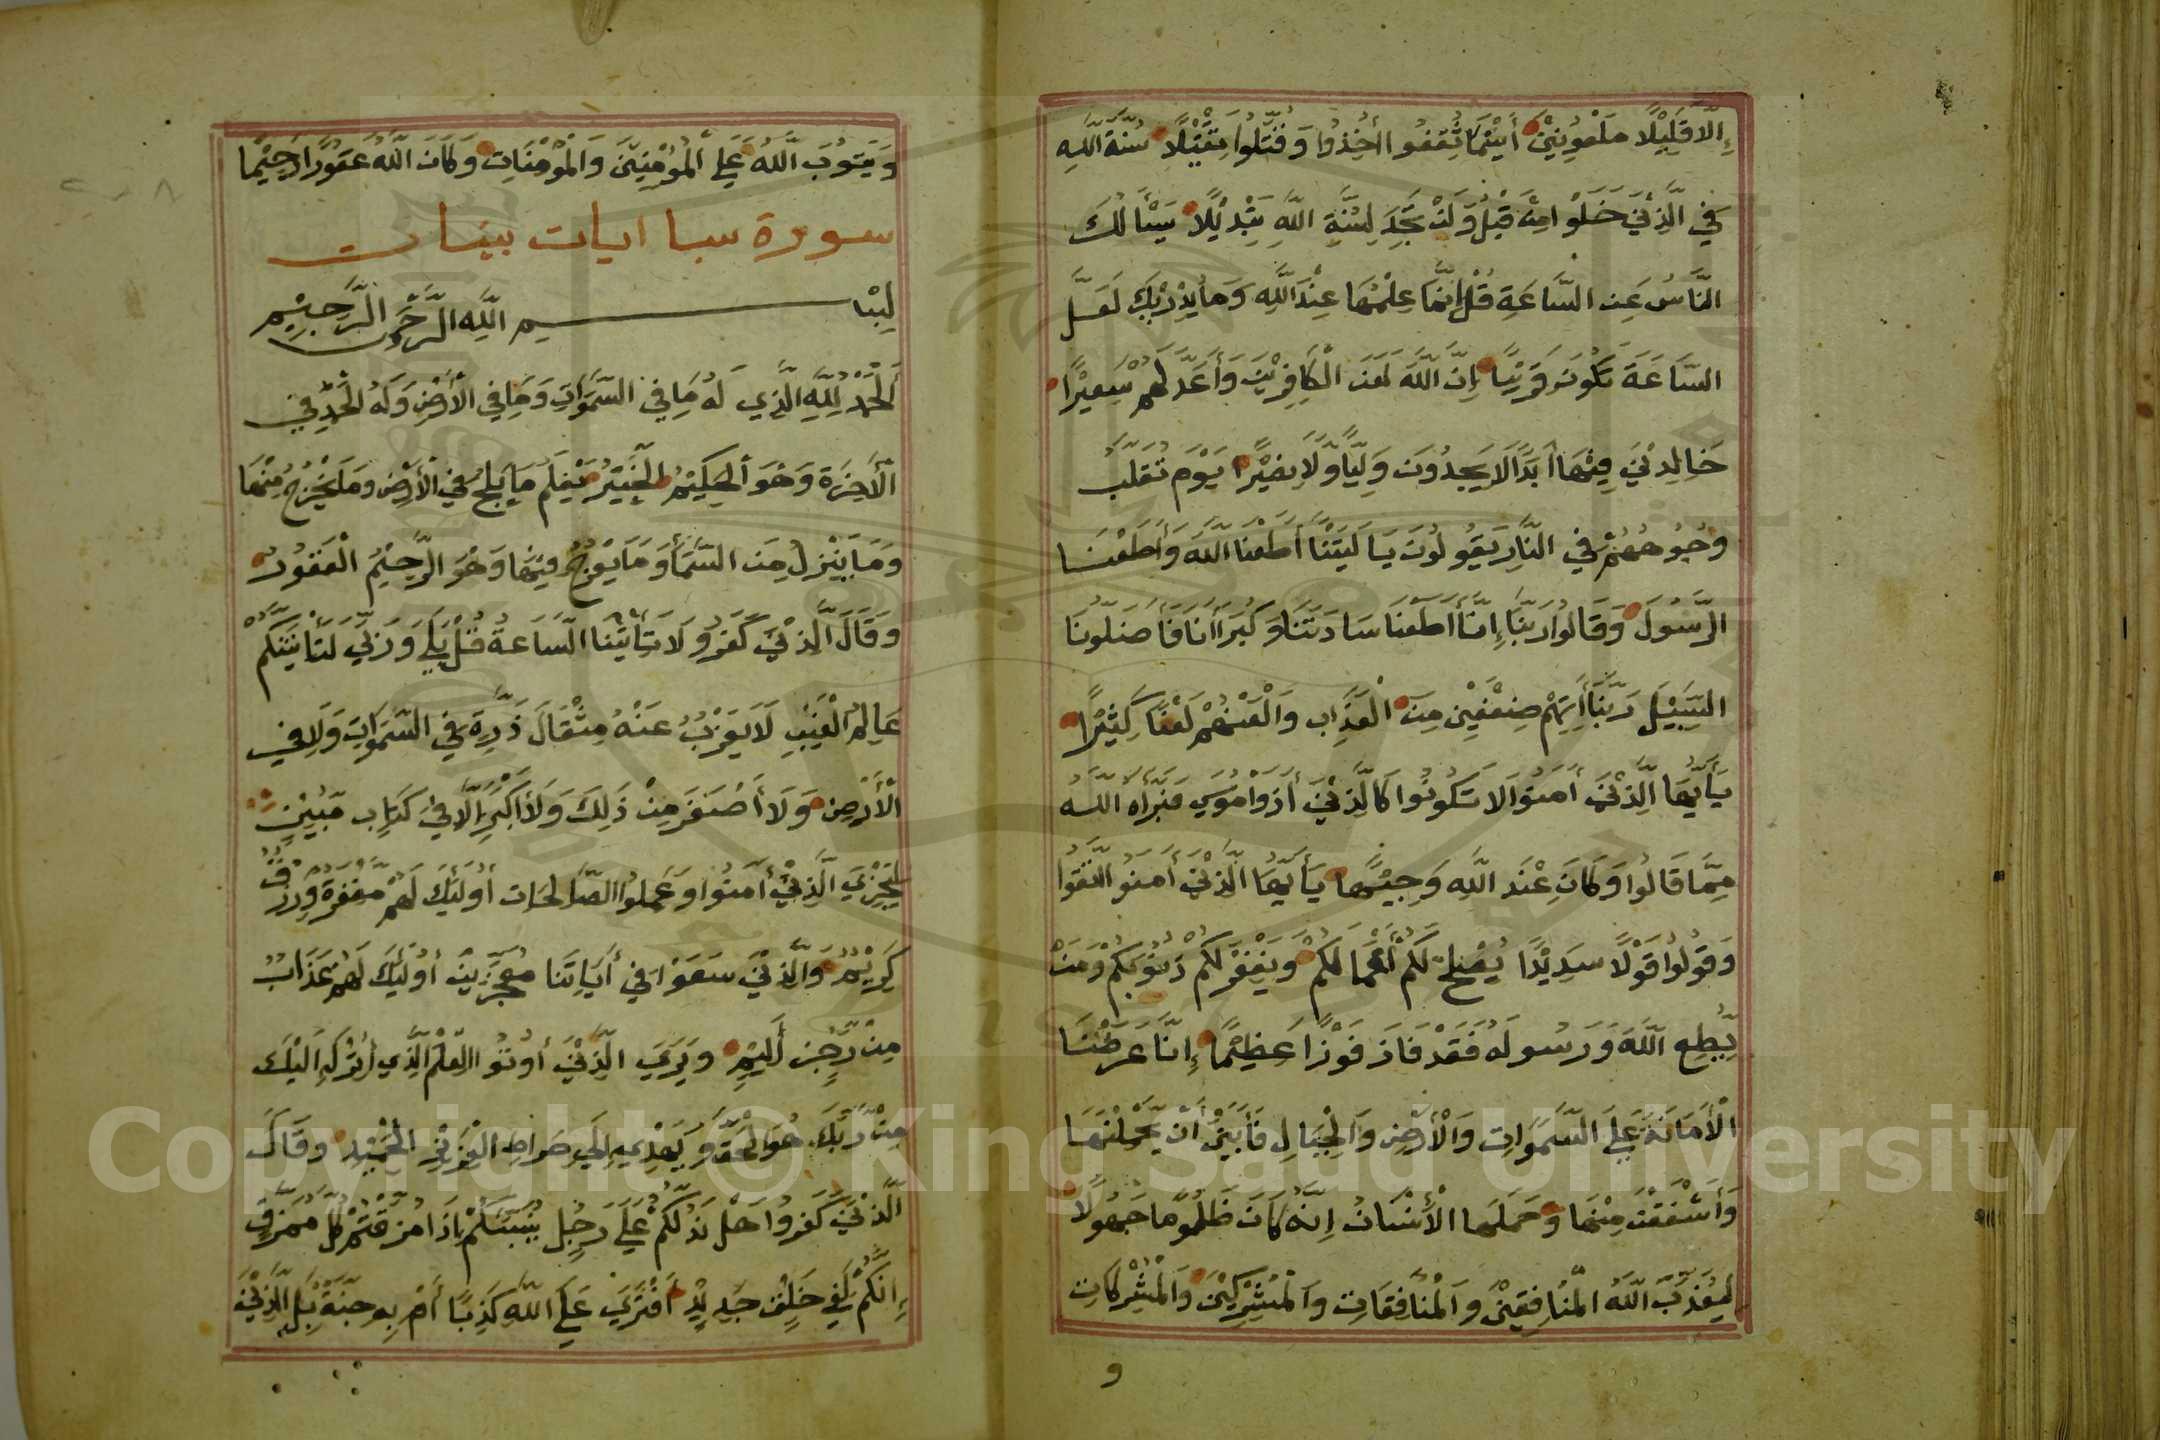 إِلَّا قَلِيْلًا مَلْعُوْنِيْنَ أَيْنَمَا ثُقِفُوا أُخِذُوا وَقُتِّلُوا تَقْتِيْلًا سُنَّةَ اللَّهِ
فِي الَّذِيْنَ خَلَوْا مِنْ قَبْلُ وَلَنْ تَجِدَ لِسُنَّةِ اللَّهِ تَبْدِيْلًا يَسْأَلُكَ
النَّاسُ عَنِ السَّاعَةِ قُلْ إِنَّمَا عِلْمُهَا عِنْدَ اللَّهِ وَمَا يُدْرِيْكَ لَعَلَّ
السَّاعَةَ تَكُونُ قَرِيْبًا إِنَّ اللَّهَ لَعَنَ الْكَافِرِيْنَ وَأَعَدَّ لَهُمْ سَعِيْرًا
خَالِدِيْنَ فِيْهَا أَبَدًا لَا يَجِدُوْنَ وَلِيًّا وَّلَا نَصِيْرًا يَوْمَ تُقَلَّبُ
وُجُوْهُهُمْ فِي النَّارِ يَقُولُونَ يَا لَيْتَنَا أَطَعْنَا اللَّهَ وَأَطَعْنَا
الرَّسُوْلَ وَقَالُوا رَبَّنَا إِنَّا أَطَعْنَا سَادَتَنَا وَكُبَرَآءَنَا فَأَضَلُّونَا
السَّبِيْلَ رَبَّنَا أَتِهِمْ ضِعْفَيْنِ مِنَ الْعَذَابِ وَالْعَنْهُمْ لَعْنًا كَثِيْرًا
يَأَيُّهَا الَّذِيْنَ أَمَنُوا لَا تَكُونُوا كَالَّذِيْنَ أَذَوْا مُوْسَى فَبَرَّأَهُ اللَّهُ
مِمَّا قَالُوا وَكَانَ عِنْدَ اللَّهِ وَجِيْهًا يَأَيُّهَا الَّذِيْنَ أَمَنُوا اتَّقُوا
وَقُولُوا قَوْلًا سَدِيْدًا يُصْلِحْ لَكُمْ أَعْمَالَكُمْ وَيَغْفِرْ لَكُمْ ذُنُوْبَكُمْ وَمَنْ
يُّطِعِ اللَّهَ وَرَسُولَهُ فَقَدْ فَازَ فَوْزًا عَظِيْمًا إِنَّا عَرَضْنَا
الْأَمَانَةَ عَلَى السَّمٰوَاتِ وَالْأَرْضِ وَالْجِبَالِ فَأَبَيْنَ أَنْ يَحْمِلْنَهَا
وَأَشْفَقْنَ مِنْهَا وَحَمَلَهَا الْأِنْسَانُ إِنَّهُ كَانَ ظَلُوْمًا جَهُولًا
لِيُعَذِّبَ اللَّهُ الْمُنَافِقِيْنَ وَالْمُنَافِقَاتِ وَالْمُشْرِكِيْنَ وَالْمُشْرِكَاتِ
و
وَيَتُوْبَ اللَّهُ عَلَى الْمُؤْمِنِيْنَ وَالْمُؤْمِنَاتِ وَكَانَ اللَّهُ غَفُوْرًا رَحِيْمًا
سورة سبا ايات بينات
بِسْمِ اللَّهِ الرَّحْمٰنِ الرَّحِيْمِ
اَلْحَمْدُ لِلَّهِ الَّذِي لَهُ مَا فِي السَّمٰوَاتِ وَمَا فِي الْأَرْضِ وَلَهُ الْحَمْدُ فِي
الْأَخِرَةِ وَهُوَ الْحَكِيْمُ الْخَبِيْرُ يَعْلَمُ مَا يَلِجُ فِي الْأَرْضِ وَمَا يَخْرُجُ مِنْهَا
وَمَا يَنْزِلُ مِنَ السَّمَآءِ وَمَا يَعْرُجُ فِيْهَا وَهُوَ الرَّحِيْمُ الْغَفُوْرُ
وَقَالَ الَّذِيْنَ كَفَرُو لَا تَأْتِيْنَا السَّاعَةُ قُلْ بَلَى وَرَبِّي لَتَأْتِيَنَّكُمْ
عَالِمِ الْغَيْبِ لَا يَعْزُبُ عَنْهُ مِثْقَالُ ذَرَّةٍ فِي السَّمٰوَاتِ وَلَا فِي
الْأَرْضِ وَلَا أَصْغَرُ مِنْ ذَلِكَ وَلَا أَكْبَرُ إِلَّا فِي كِتَابٍ مُبِيْنٍ
لِيَجْزِيَ الَّذِيْنَ أَمَنُوا وَعَمِلُوا الصَّالِحَاتِ أُولَئِكَ لَهُمْ مَغْفِرَةٌ وَّرِزْقٌ
كَرِيْمٌ وَالَّذِيْنَ سَعَوْا فِي أَيَاتِنَا مُعْجِزِيْنَ أُولَئِكَ لَهُمْ عَذَابٌ
مِنْ رِّجْزٍ أَلِيْمٍ وَيَرَى الَّذِيْنَ أُوتُوا الْعِلْمَ الَّذِي أُنْزِلَ إِلَيْكَ
مِنْ رَّبِّكَ هُوَ الْحَقَّ وَيَهْدِي إِلَى صِرَاطِ الْعَزِيْزِ الْحَمِيْدِ وَقَالَ
الَّذِيْنَ كَفَرُوا هَلْ نَدُلُّكُمْ عَلَى رَجُلٍ يُنَبِّئُكُمْ إِذَا مُزِّقْتُمْ كُلَّ مُمَزَّقٍ
إِنَّكُمْ لَفِي خَلْقٍ جَدِيْدٍ أَفْتَرَى عَلَى اللَّهِ كَذِبًا أَمْ بِهِ جِنَّةٌ بَلِ الَّذِيْنَ
Copyright © King Saud University